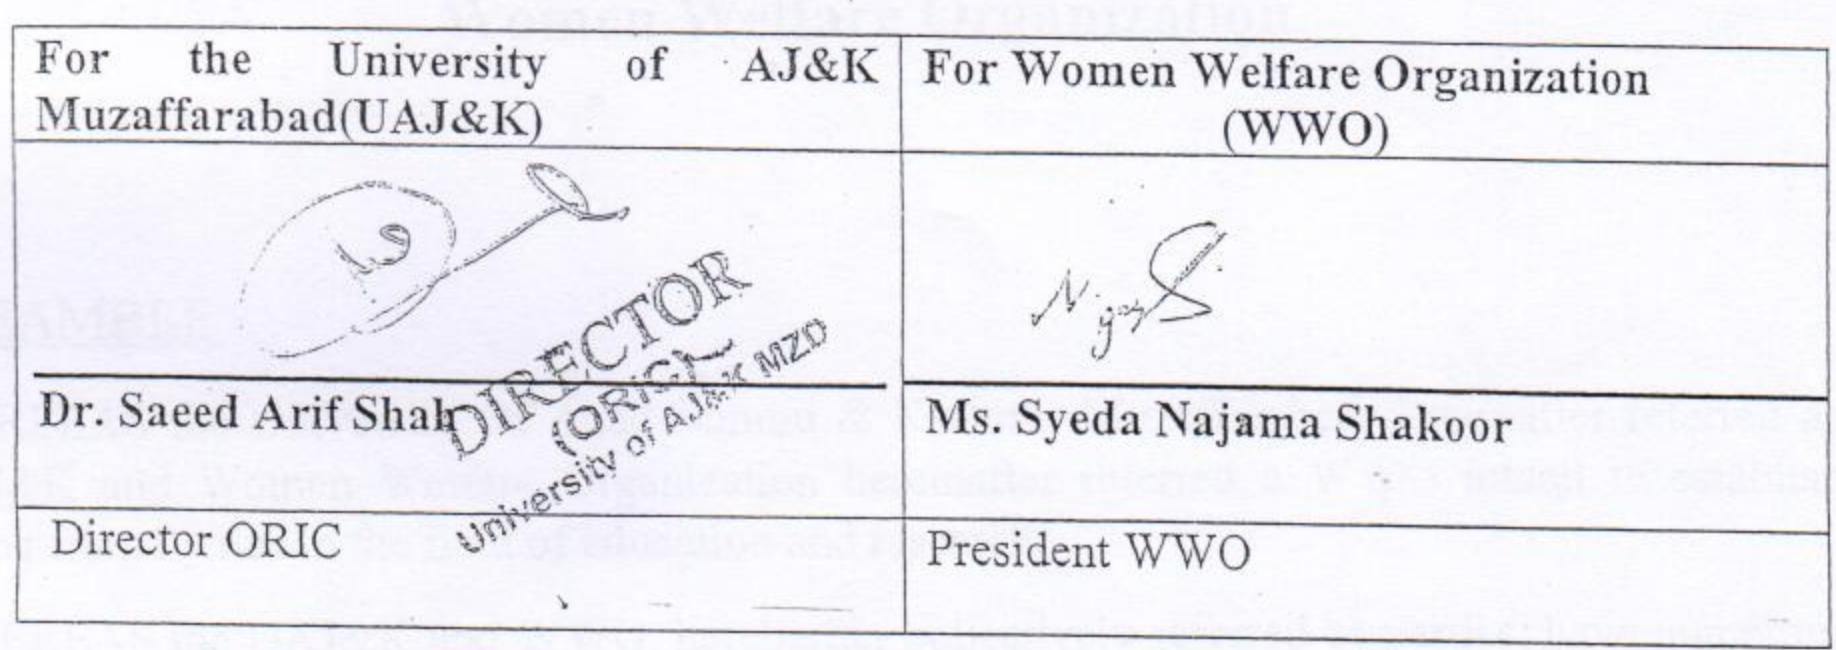 Women Welfare Organization
For the University of AJ&K
Muzaffarabad(UAJ&K)
For Women Welfare Organization
(WWO)
DIRECTOR
(ORIC)
University of AJ&K MZD
Dr. Saeed Arif Shah
Ms. Syeda Najama Shakoor
Director ORIC
President WWO